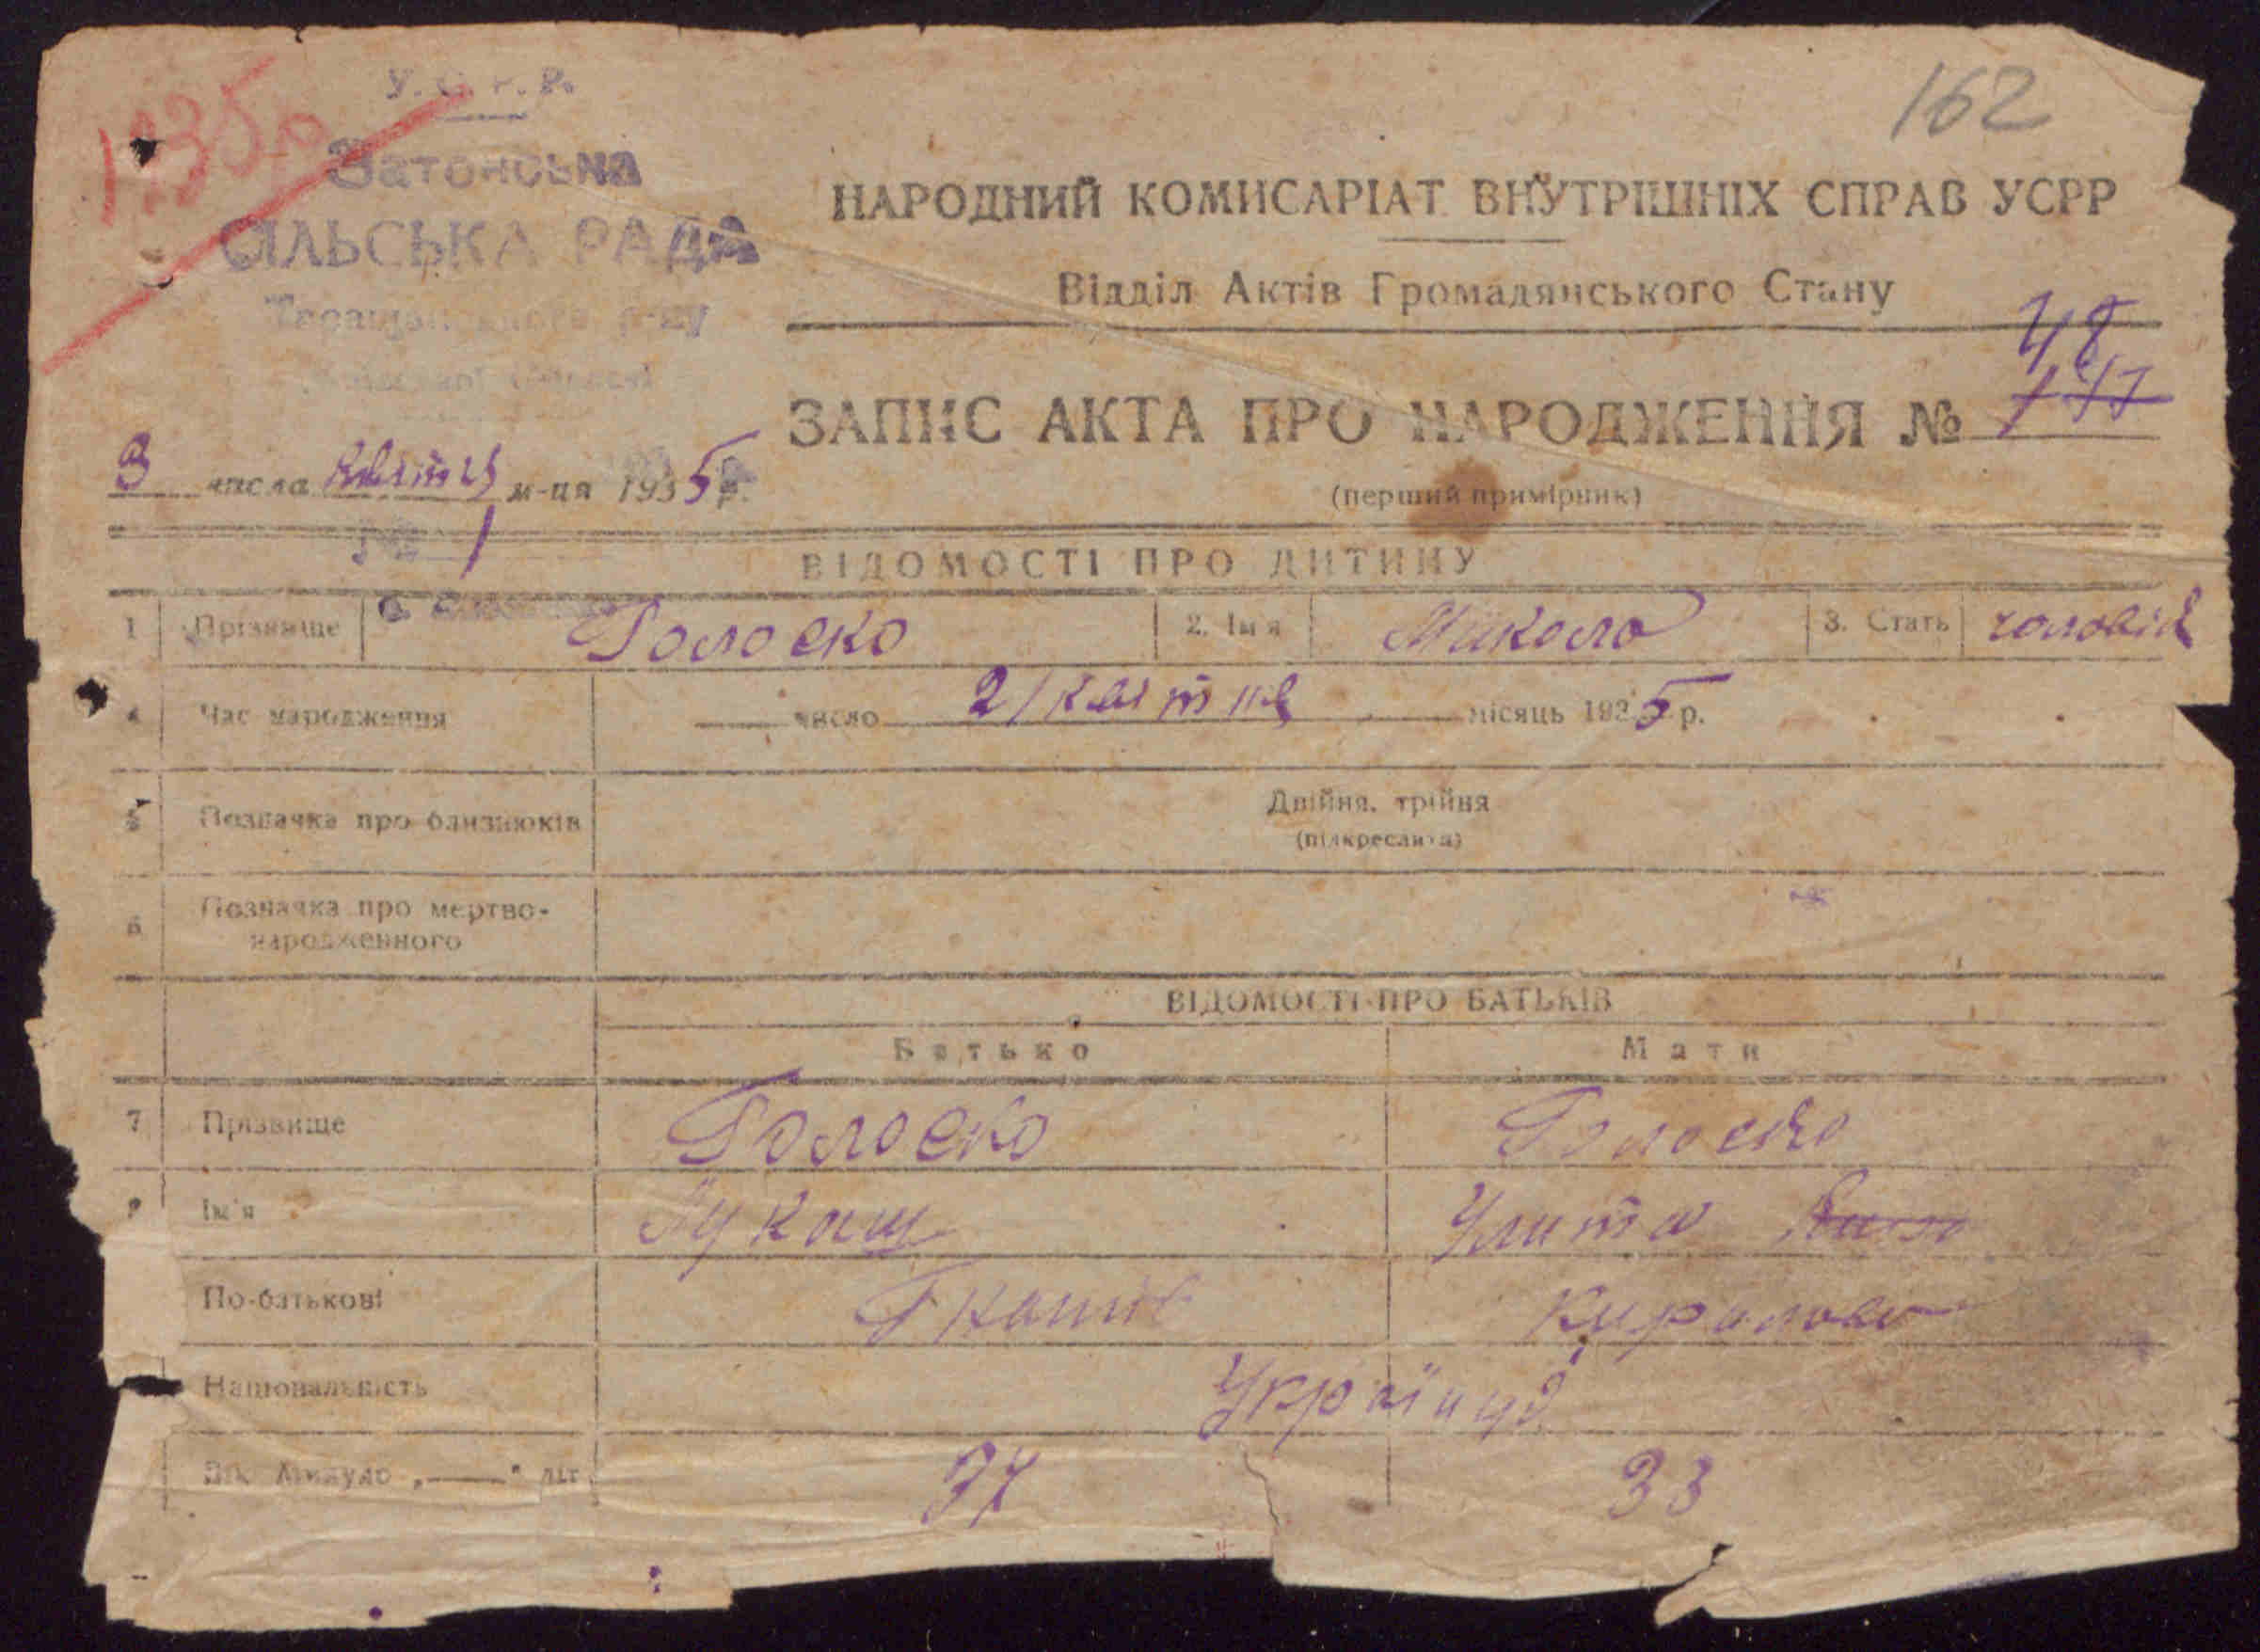 162
1935р
У.С.Р.Р.
Затонська
СІЛЬСЬКА РАДА
Таращанського р-ну
НАРОДНИЙ КОМИСАРІАТ ВНУТРІШНІХ СПРАВ УСРР
Відділ Актів Громадянського Стану
48
ЗАПИС АКТА ПРО НАРОДЖЕННЯ №
(перший примірник)
3 числа квітня м-ця 1935 р.
№ 1
ВІДОМОСТІ ПРО ДИТИНУ
1 Прізвище Голоско 2. Ім'я Микола 3. Стать чоловіч
4 Час народження число 2/квітня місяць 1935 р.
5 Позначка про близнюків Двійня, трійня
(підкреслити)
6 Позначка про мертво-
народженного
ВІДОМОСТІ ПРО БАТЬКІВ
Батько Мати
7 Прізвище Голоско Голоско
8 Ім'я Лукаш Улита
По-батькові Гнатів Кирилова
Національність Українці
Вік. Минуло „—" літ 37 33